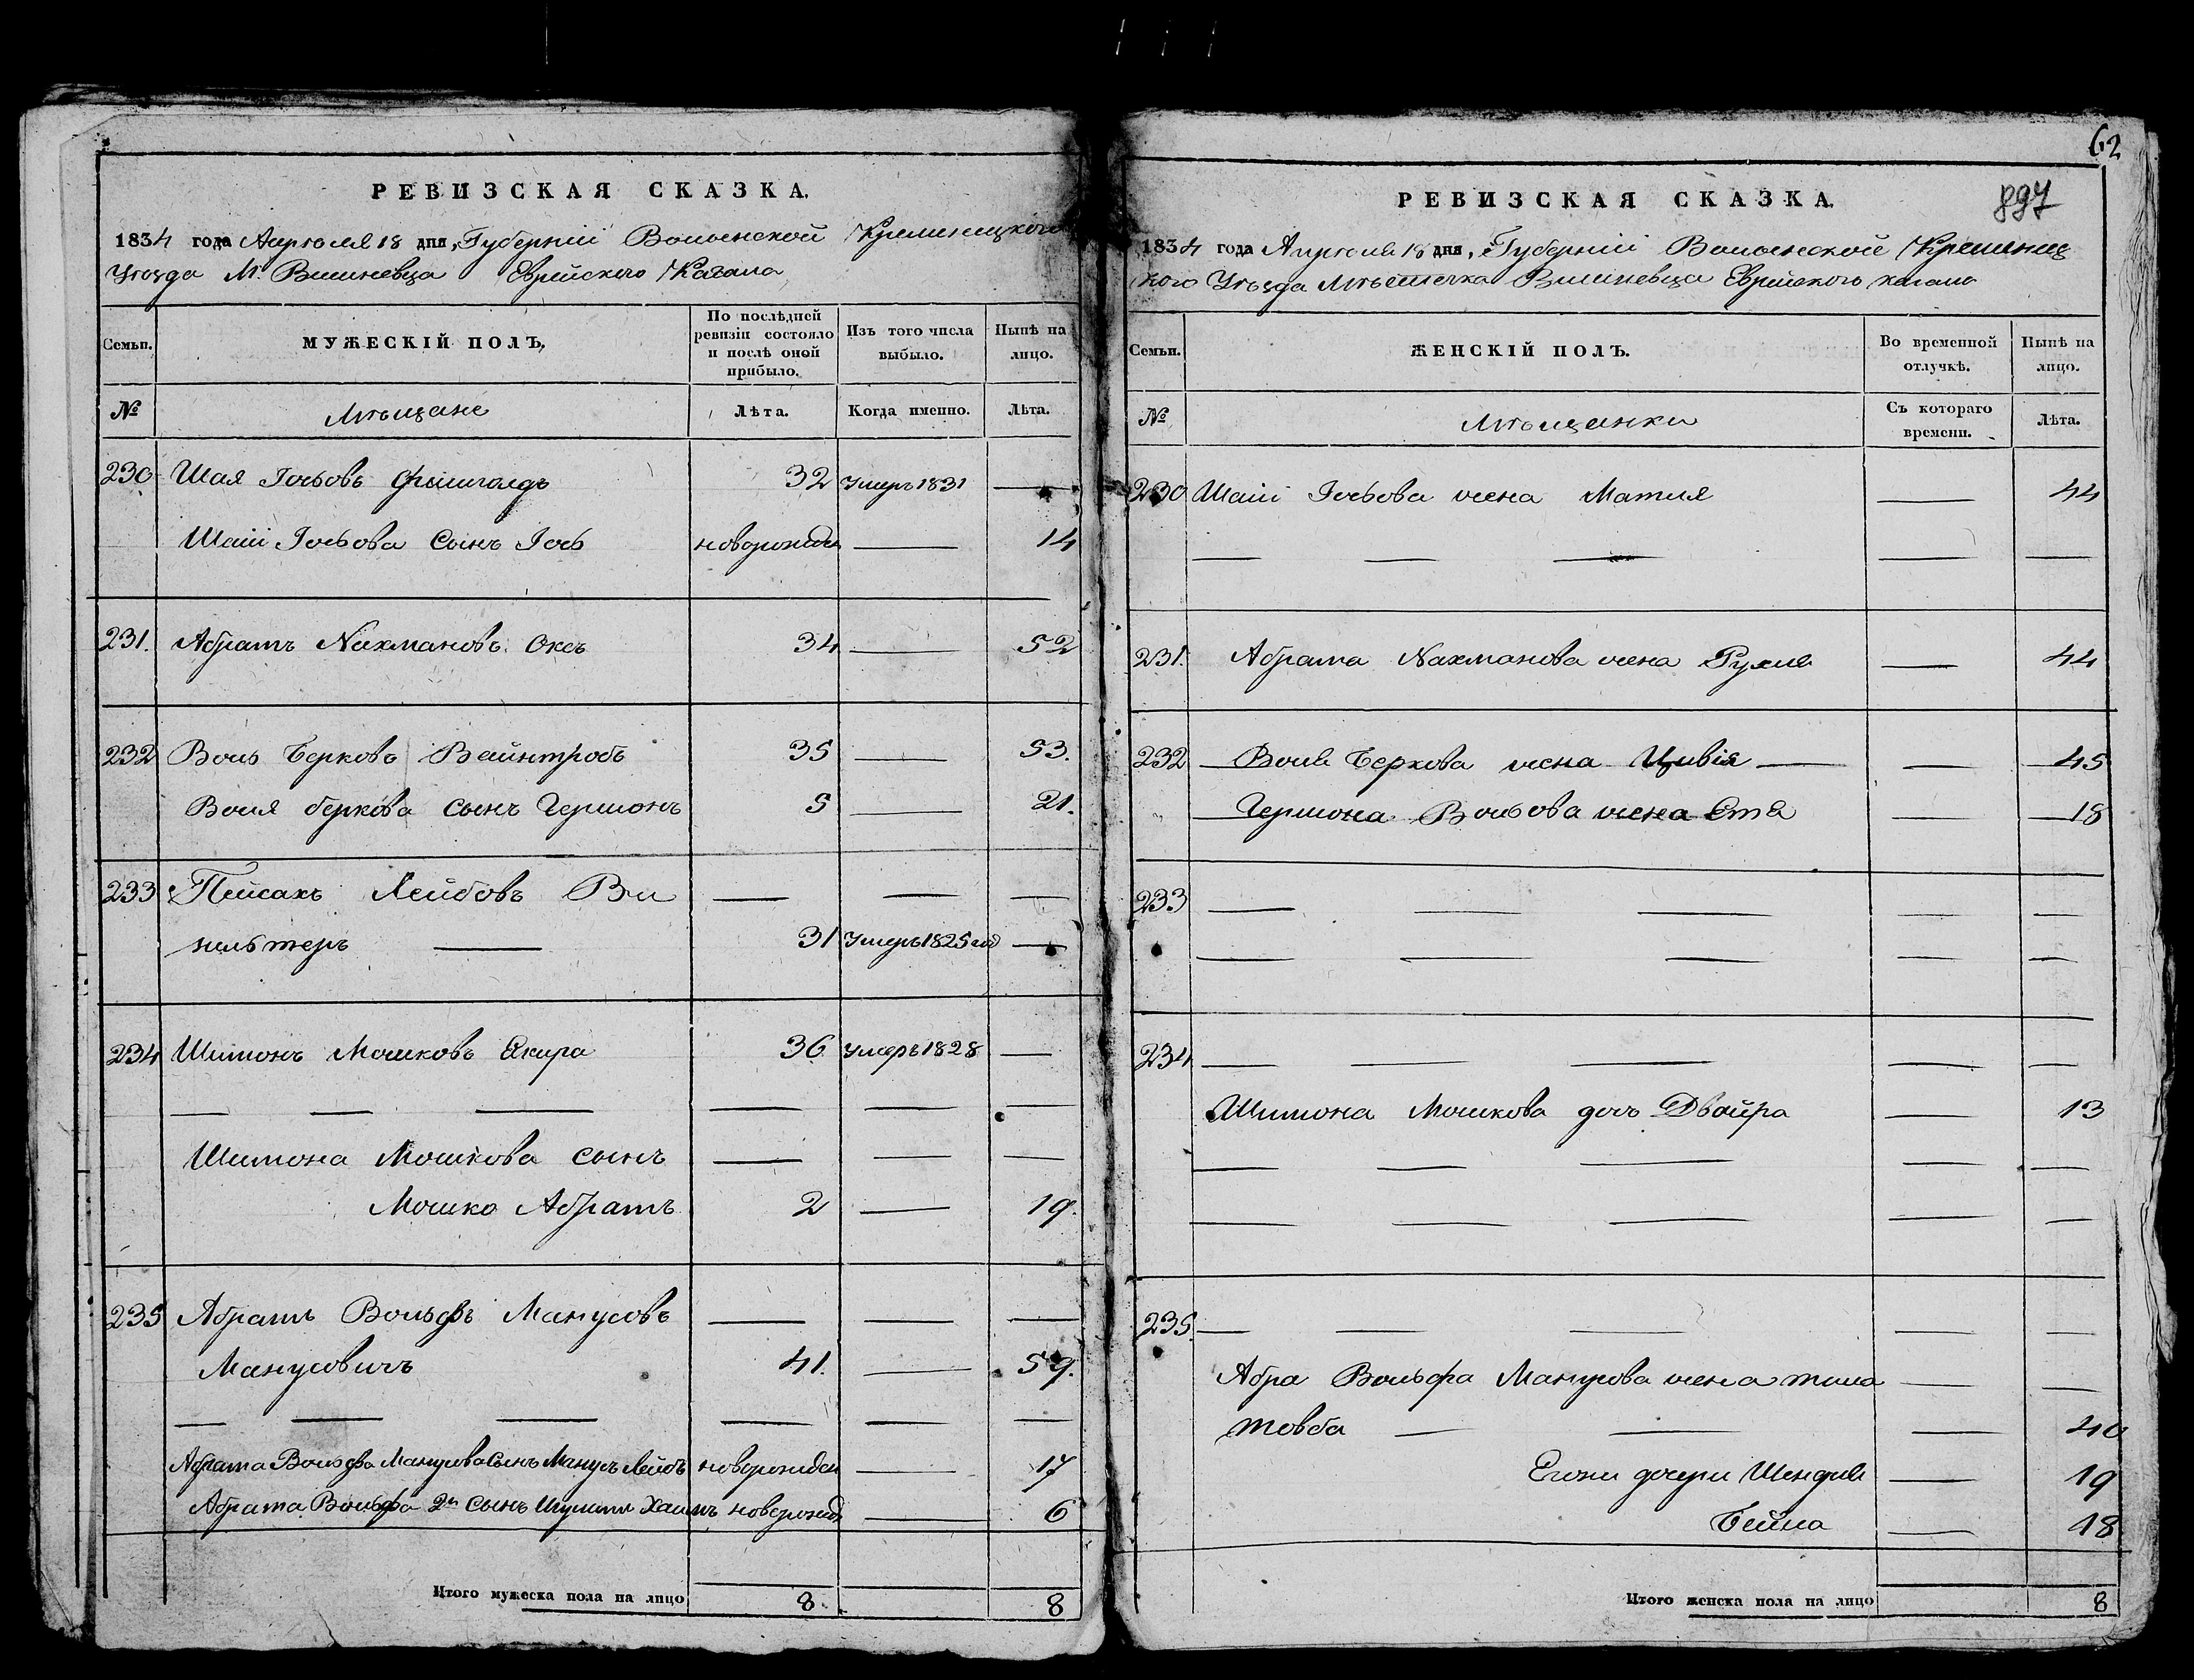 РЕВИЗСКАЯ СКАЗКА.
1834 года Апрѣля 18 дня, Губерніи Волынской Кременецкого
Уѣзда М. Вишневца Еврейского Кагала
Семьи. МУЖЕСКІЙ ПОЛЪ. По послѣдней ревизіи состояло и послѣ оной прибыло. Изъ того числа выбыло. Нынѣ на лицо.
№ Мѣщане Лѣта. Когда именно. Лѣта.
230 Шая Іосьовъ 32 Умеръ 1831 —
Шаіи Іосьова Сынъ Іось новорожден — 14
231. Абрамъ Нахмановъ Оксъ 34 — 52
232 Воль Берковъ Вайнтробъ 35 — 53.
Воля Беркова сынъ Гершонъ 5 — 21.
233 Пейсахъ Лейбовъ Ви — — —
нильтеръ — 31 Умеръ 1825 год —
234 Шимонъ Мошковъ Якира 36 Умеръ 1828 —
— — — — — —
Шимона Мошкова сынъ — — —
Мошко Абрамъ 2 — 19.
235 Абрамъ Вольфъ Манусовъ — — —
Манусовичъ 41. — 59.
— — — — — —
Абрама Вольфа Манусова Сынъ Манусъ Лейбъ новорожден — 17
Абрама Вольфа 2й Сынъ Хаимъ новорожд — 6
Итого мужеска пола на лицо 8 8
62
РЕВИЗСКАЯ СКАЗКА.
897
1834 года Апрѣля 18 дня, Губерніи Волынской Кременец
кого Уѣзда Мѣстечка Вишневца Еврейского кагала
Семьи. ЖЕНСКІЙ ПОЛЪ. Во временной отлучкѣ. Нынѣ на лицо.
№ Мѣщанки Съ котораго времени. Лѣта.
230 Шаіи Іосьова жена Матля — 44
— — — — —
231. Абрама Нахманова жена Рухля — 44
232 Воля Беркова жена Цивія — 45
Гершона Вольова жена Етя — 18
233 — — — — —
— — — — —
234 — — — — —
Шимона Мошкова дочь Двойра — 13
— — — — —
— — — — —
235. — — — — —
Абра Вольфа Манусова жена — —
товба — — — 40
Егожи дочери Шендля — 19
Бейна — 18
Итого женска пола на лицо 8